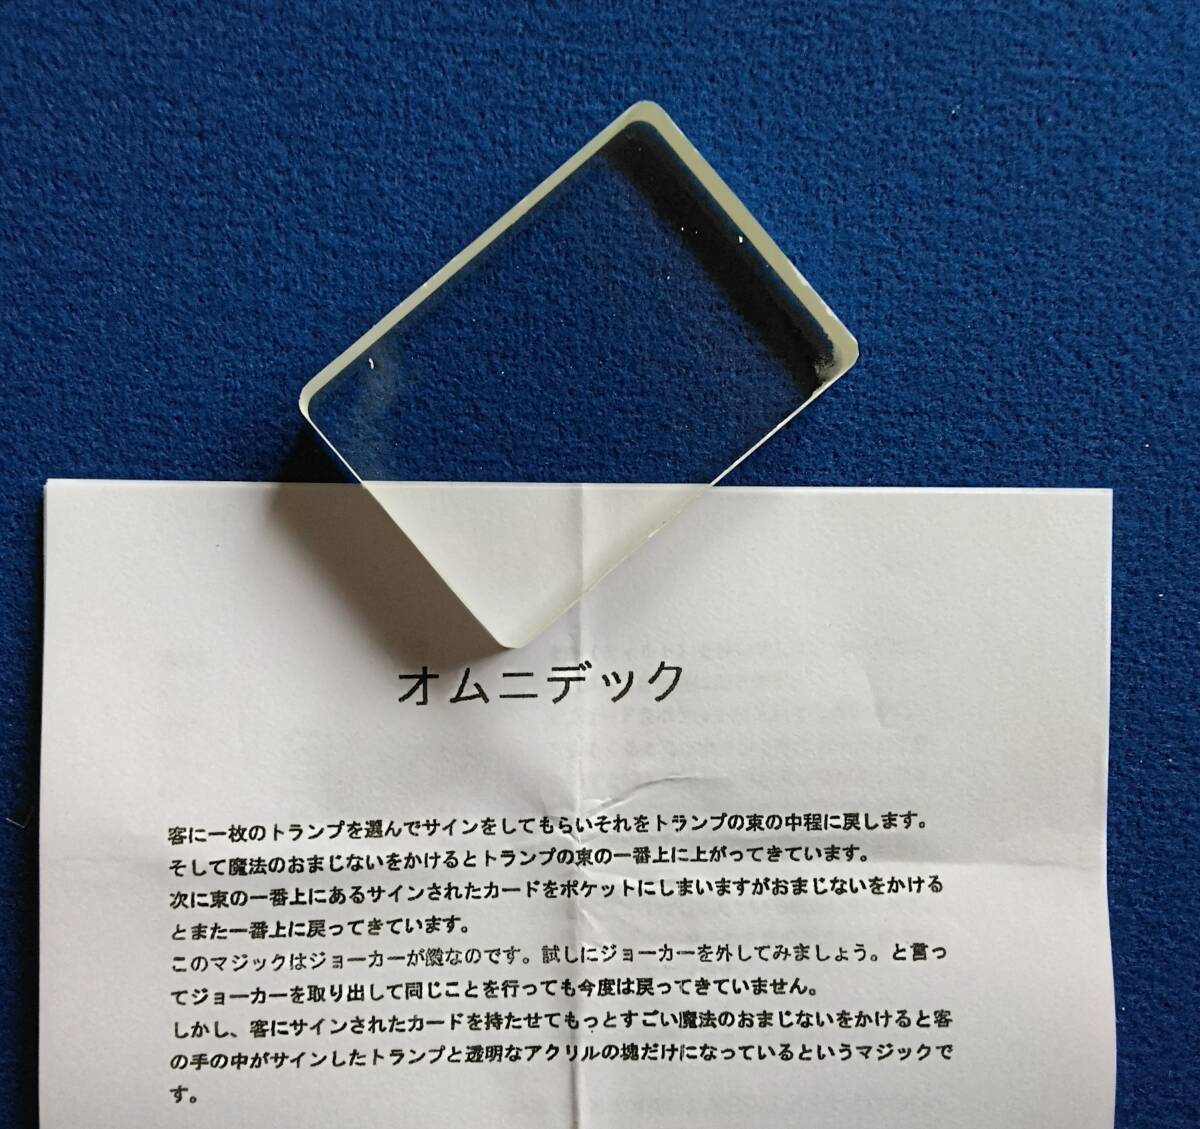 オムニデック
客に一枚のトランプを選んでサインをしてもらいそれをトランプの束の中程に戻します。
そして魔法のおまじないをかけるとトランプの束の一番上に上がってきています。
次に束の一番上にあるサインされたカードをポケットにしまいますがおまじないをかける
とまた一番上に戻ってきています。
このマジックはジョーカーが鍵なのです。試しにジョーカーを外してみましょう。と言っ
てジョーカーを取り出して同じことを行っても今度は戻ってきていません。
しかし、客にサインされたカードを持たせてもっとすごい魔法のおまじないをかけると客
の手の中がサインしたトランプと透明なアクリルの塊だけになっているというマジックで
す。